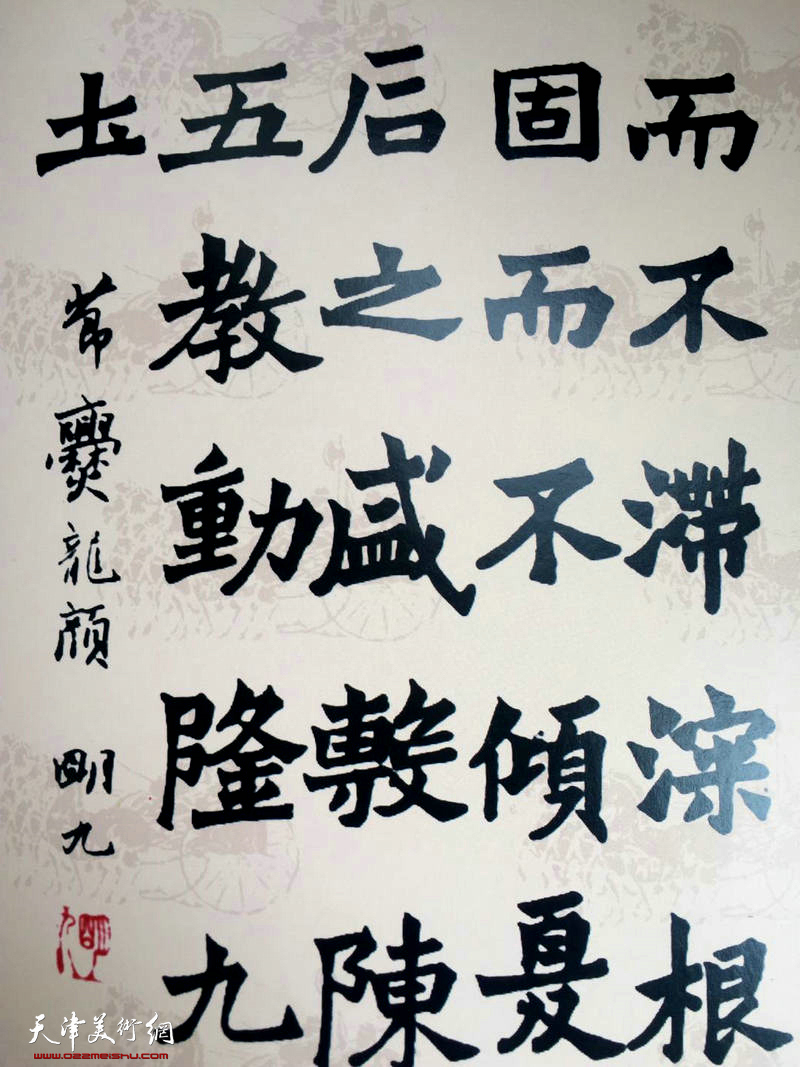 而不滞深根
固而不傾夏
后之盛敷陳
五教動隆九
土
節爨龍顏 明九
天津美術網
www.022meishu.com